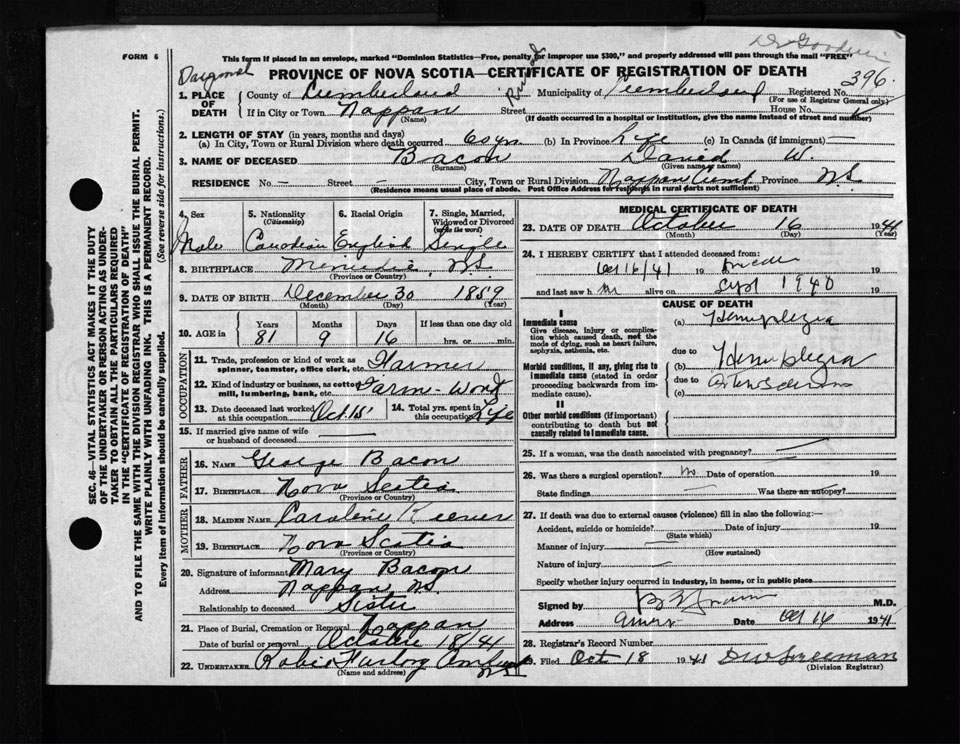 Dr Goodwin
FORM 6
This form if placed in an envelope, marked "Dominion Statistics—Free, penalty for improper use $300," and properly addressed will pass through the mail "FREE"
PROVINCE OF NOVA SCOTIA—CERTIFICATE OF REGISTRATION OF DEATH
396
1. PLACE OF DEATH County of Cumberland Rural Municipality of Cumberland Registered No.
(For use of Registrar General only)
If in City or Town Nappan Street House No.
(Name) (If death occurred in a hospital or institution, give the name instead of street and number)
2. LENGTH OF STAY (in years, months and days)
(a) In City, Town or Rural Division where death occurred 60 yrs (b) In Province Life (c) In Canada (if immigrant) —
3. NAME OF DECEASED Bacon David W.
(Surname) (Given name or names)
RESIDENCE No. — Street — City, Town or Rural Division Nappan Cumb Province N.S.
(Residence means usual place of abode. Post Office Address for residents in rural parts not sufficient)
4. Sex Male
5. Nationality (Citizenship) Canadian
6. Racial Origin English
7. Single, Married, Widowed or Divorced (write the word) Single
8. BIRTHPLACE Minudie, N.S.
(Province or Country)
9. DATE OF BIRTH December 30 1859
(Month) (Day) (Year)
10. AGE in Years 81 Months 9 Days 16 If less than one day old hrs. or min.
OCCUPATION
11. Trade, profession or kind of work as spinner, teamster, office clerk, etc. Farmer
12. Kind of industry or business, as cotton mill, lumbering, bank, etc. Farm-Work
13. Date deceased last worked at this occupation Oct. 15
14. Total yrs. spent in this occupation Life
15. If married give name of wife or husband of deceased —
FATHER
16. NAME George Bacon
17. BIRTHPLACE Nova Scotia
(Province or Country)
MOTHER
18. MAIDEN NAME Caroline
19. BIRTHPLACE Nova Scotia
(Province or Country)
20. Signature of informant Mary Bacon
Address Nappan N.S.
Relationship to deceased Sister
21. Place of Burial, Cremation or Removal Nappan
Date of burial or removal October 18/41
22. UNDERTAKER Furlong Amherst N.S.
(Name and address)
MEDICAL CERTIFICATE OF DEATH
23. DATE OF DEATH October 16 1941
(Month) (Day) (Year)
24. I HEREBY CERTIFY that I attended deceased from:
Oct 16/41 19 19
and last saw h im alive on Sept 1940 19
CAUSE OF DEATH
I
Immediate cause
Give disease, injury or complication which caused death, not the mode of dying, such as heart failure, asphyxia, asthenia, etc.
(a) Hemiplegia
due to
Morbid conditions, if any, giving rise to immediate cause (stated in order proceeding backwards from immediate cause).
(b) Hemiplegia
due to Arteriosclerosis
(c)
II
Other morbid conditions (if important) contributing to death but not causally related to immediate cause.
25. If a woman, was the death associated with pregnancy? —
26. Was there a surgical operation? No Date of operation 19
State findings Was there an autopsy?
27. If death was due to external causes (violence) fill in also the following:—
Accident, suicide or homicide? Date of injury 19
(State which)
Manner of injury —
(How sustained)
Nature of injury —
Specify whether injury occurred in industry, in home, or in public place
Signed by M.D.
Address Date Oct 16 1941
28. Registrar's Record Number
29. Filed Oct 18 1941
(Division Registrar)
SEC. 46—VITAL STATISTICS ACT MAKES IT THE DUTY
OF THE UNDERTAKER OR PERSON ACTING AS UNDER-
TAKER TO OBTAIN ALL THE PARTICULARS REQUIRED
IN THE "CERTIFICATE OF REGISTRATION OF DEATH"
AND TO FILE THE SAME WITH THE DIVISION REGISTRAR WHO SHALL ISSUE THE BURIAL PERMIT.
WRITE PLAINLY WITH UNFADING INK. THIS IS A PERMANENT RECORD.
Every item of information should be carefully supplied. (See reverse side for instructions.)